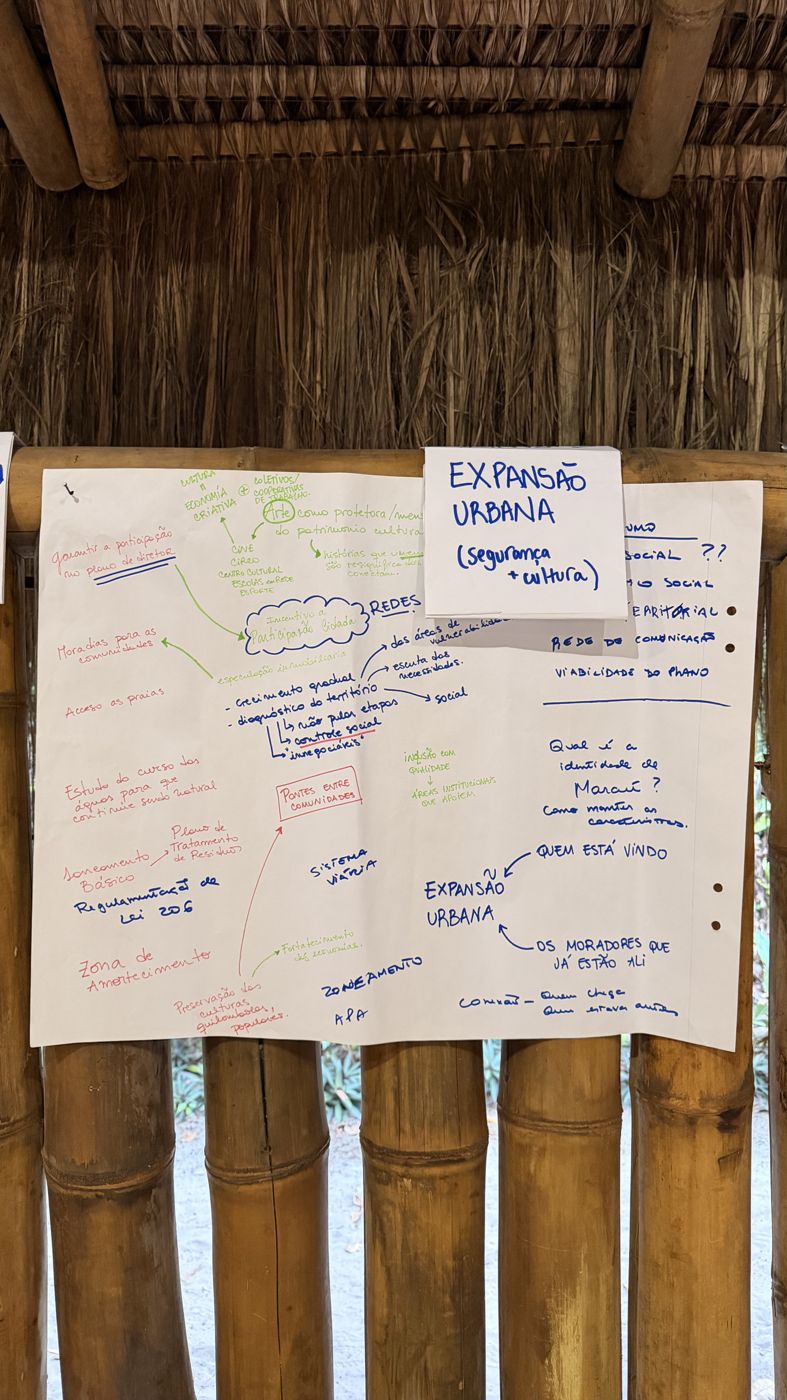 EXPANSÃO
URBANA
(segurança
+ cultura)
CULTURA
ECONOMIA
CRIATIVA
+ COLETIVOS/
COOPERATIVAS
DE
Arte como protetora/
do patrimonio
histórias que
são
conectam.
CINE
CIRCO
CENTRO CULTURAL
ESCOLAS EM REDE
ESPORTE
garantir a participação
no plano de diretor
Incentivo a
Participação Cidadã
REDES
Moradias para as
comunidades
especulação imobiliária
- crescimento gradual
- diagnóstico do território
das áreas de
escuta das
necessidades.
social
não pular etapas
controle social
"innegociáreis"
Acceso as praias
Estudo do curso das
águas para que
continuie sendo natural
PONTES ENTRE
COMUNIDADES
INCLUSÃO COM
QUALIDADE
ÁREAS INSTITUCIONAIS
QUE APOIEM
Saneamento
Básico
Plano de
Tratamento
de Residuos
Regulamentação da
Lei 206
SISTEMA
VIÁRIA
Zona de
Amortecimento
Preservação das
culturas
quilombolas,
populares.
Fortalecimento
das economias.
ZONEAMENTO
APA
UMO
SOCIAL ??
SOCIAL
TERRITORIAL
REDE DE COMUNICAÇÃO
VIABILIDADE DO PLANO
Qual é a
identidade de
Maraú ?
Como manter as
características.
QUEM ESTÁ VINDO
EXPANSÃO
URBANA
OS MORADORES QUE
JÁ ESTÃO ALI
Conexão - Quem chega
Quem estava antes